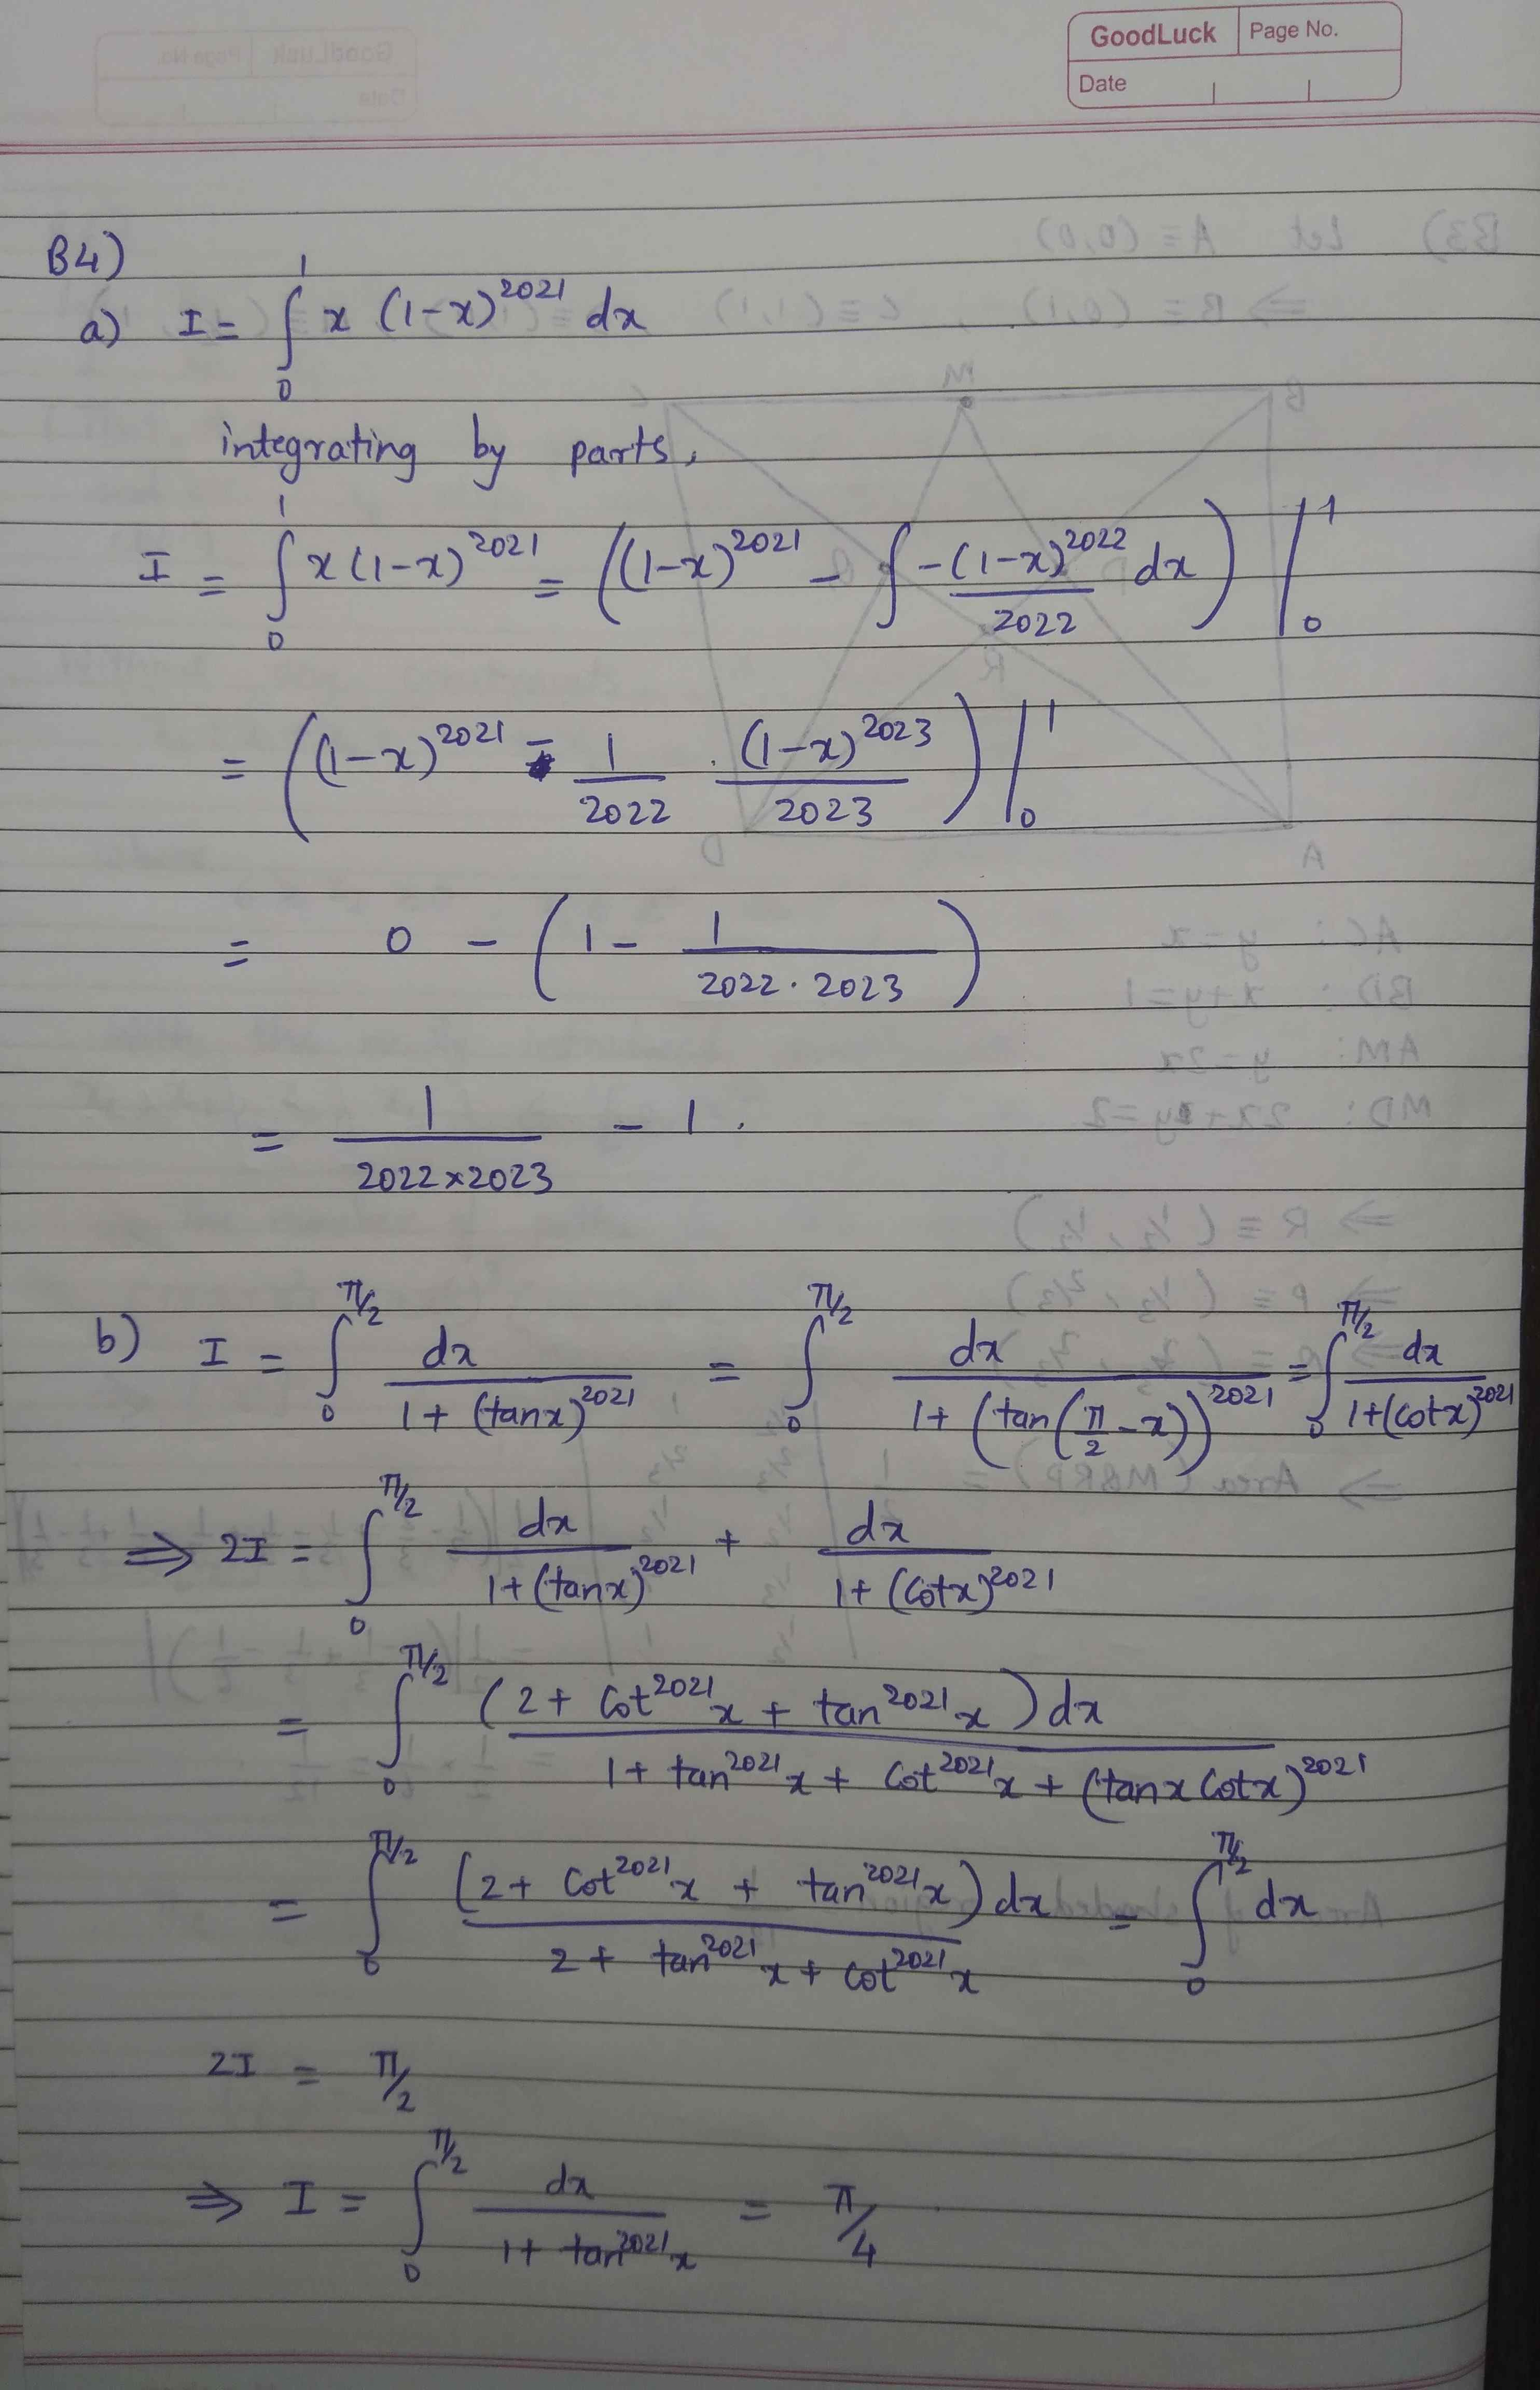 GoodLuck Page No.
Date
B4)
a) I = ∫₀¹ x (1-x)^2021 dx
integrating by parts,
I = ∫₀¹ x(1-x)^2021 = ((1-x)^2021 - ∫ -(1-x)^2022/2022 dx) |₀¹
= ((1-x)^2021 - 1/2022 . (1-x)^2023/2023) |₀¹
= 0 - (1 - 1/(2022 . 2023))
= 1/(2022×2023) - 1.
b) I = ∫₀^(π/2) dx/(1+(tanx)^2021) = ∫₀^(π/2) dx/(1+(tan(π/2 - x))^2021) = ∫₀^(π/2) dx/(1+(cotx)^2021)
⇒ 2I = ∫₀^(π/2) dx/(1+(tanx)^2021) + dx/(1+(cotx)^2021)
= ∫₀^(π/2) (2 + cot^2021 x + tan^2021 x)dx/(1 + tan^2021 x + cot^2021 x + (tanx cotx)^2021)
= ∫₀^(π/2) (2 + cot^2021 x + tan^2021 x)dx/(2 + tan^2021 x + cot^2021 x) = ∫₀^(π/2) dx
2I = π/2
⇒ I = ∫₀^(π/2) dx/(1 + tan^2021 x) = π/4